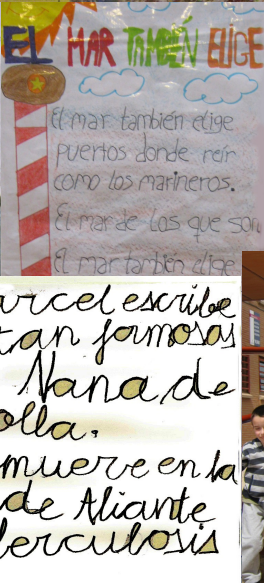 EL MAR TAMBIÉN ELIGE
El mar también elige
puertos donde reír
como los marineros.
El mar de los que son
El mar también elige
arcel escribe
tan famosas
Nana de
olla.
muere en la
de Aliante
erculosis